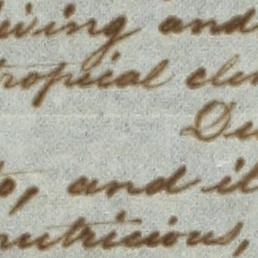 living and
tropical
to, and it
nutricious,